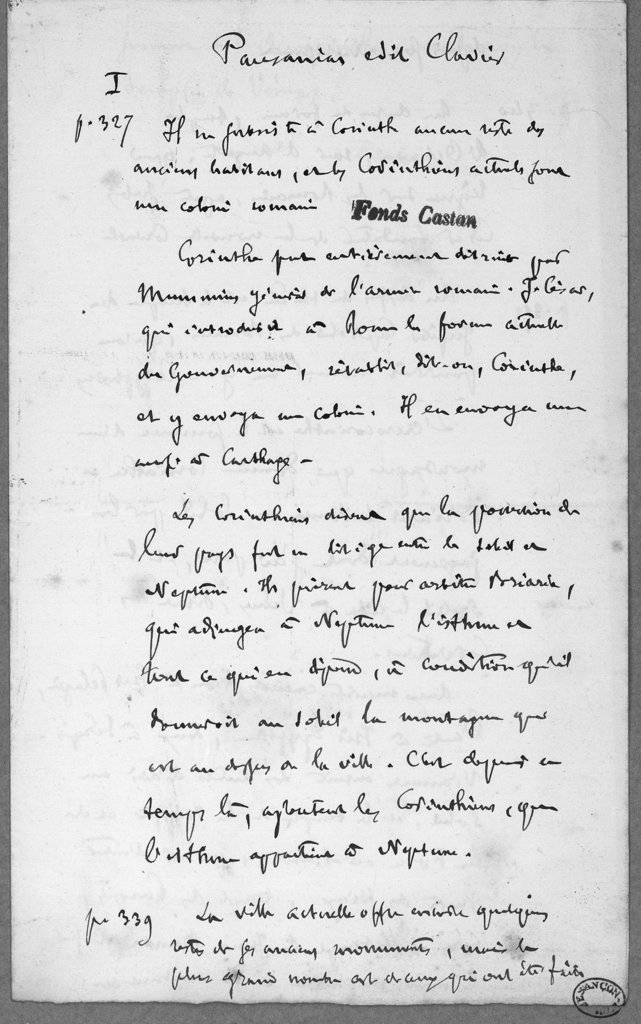 Pausanias edit Clavier
I
p. 327 Il ne subsiste à Corinthe aucun reste des
anciens habitans, et les Corinthiens actuels sont
une colonie romaine
Fonds Castan
Corinthe fut entièrement détruite par
Mummius général de l'armée romaine. J. César,
qui introduisit à Rome la forme actuelle
du Gouvernement, rétablit, dit-on, Corinthe,
et y envoya une colonie. Il en envoya une
aussi à Carthage –
Les Corinthiens disent que la possession de
leur pays fut en litige entre le Soleil et
Neptune. Ils prirent pour arbitre Briarée,
qui adjugea à Neptune l'isthme et
tout ce qui en dépend, à condition qu'il
donneroit au Soleil la montagne qui
est au dessus de la ville. C'est depuis ce
temps là, ajoutent les Corinthiens, que
l'isthme appartient à Neptune.
p. 339 La ville actuelle offre encore quelques
restes de ses anciens monuments, mais le
plus grand nombre est de ceux qui ont été faits
BESANÇON